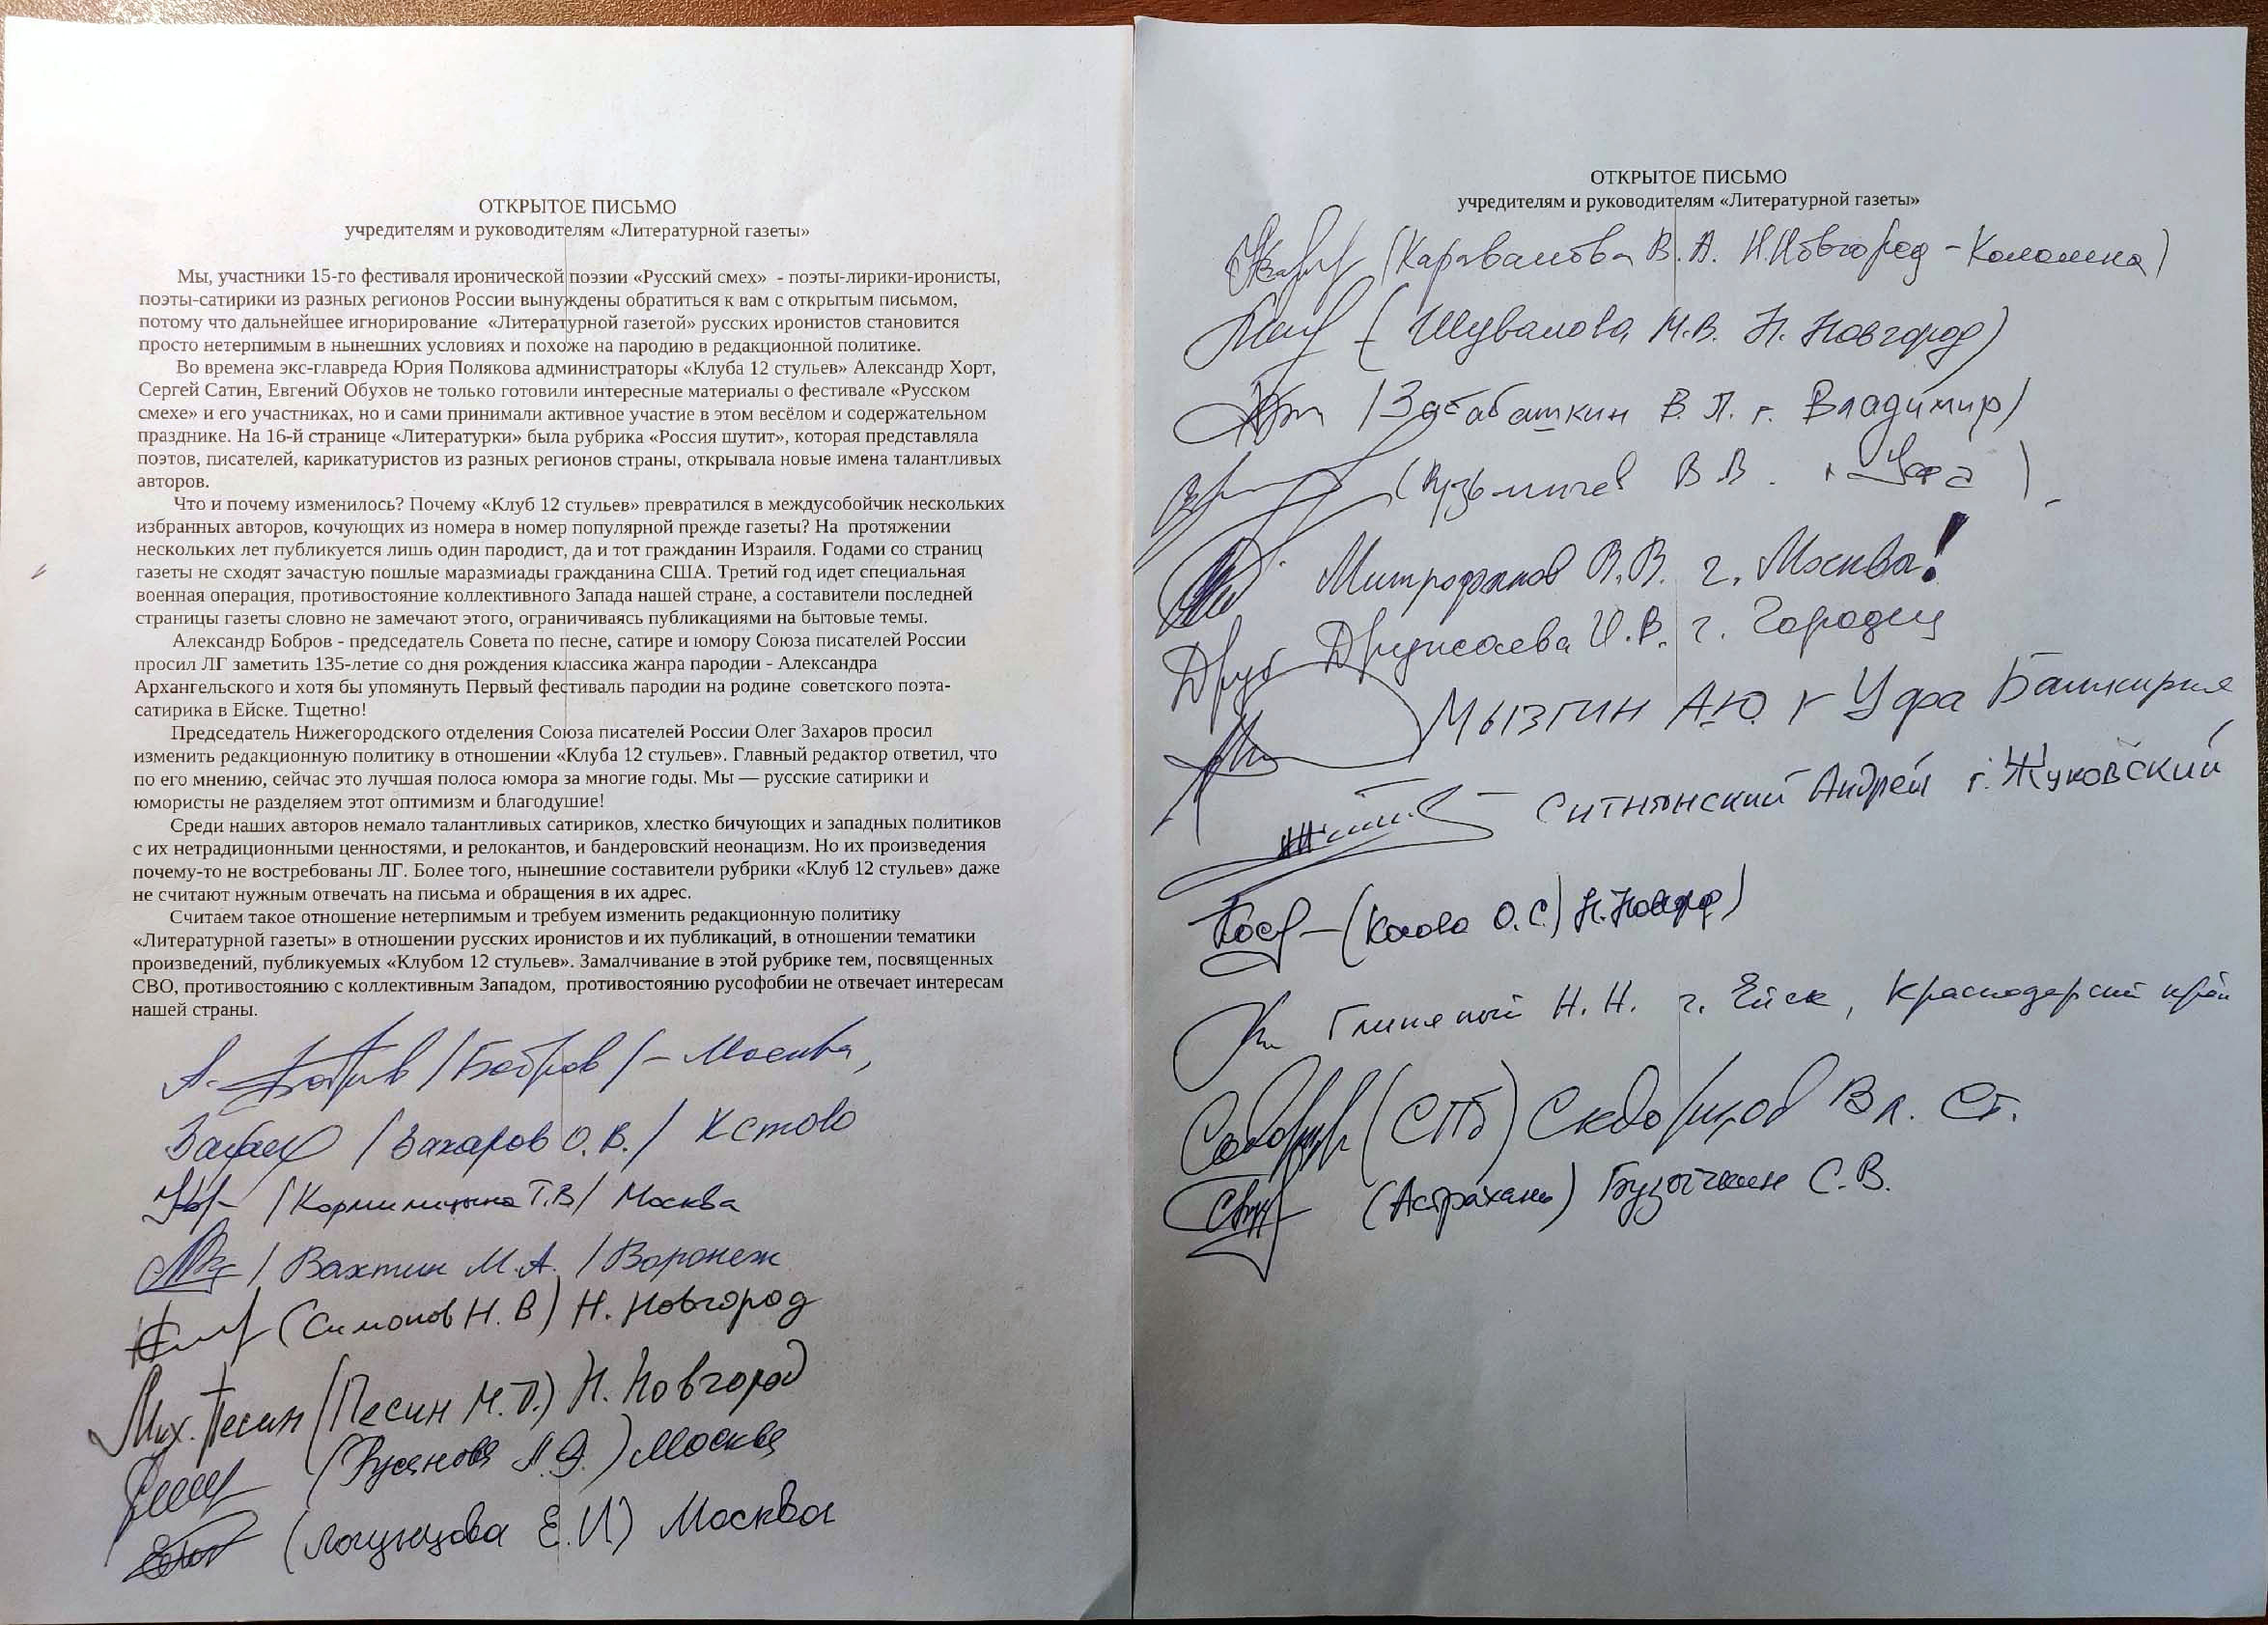 ОТКРЫТОЕ ПИСЬМО
учредителям и руководителям «Литературной газеты»
Мы, участники 15-го фестиваля иронической поэзии «Русский смех»  - поэты-лирики-иронисты,
поэты-сатирики из разных регионов России вынуждены обратиться к вам с открытым письмом,
потому что дальнейшее игнорирование  «Литературной газетой» русских иронистов становится
просто нетерпимым в нынешних условиях и похоже на пародию в редакционной политике.
Во времена экс-главреда Юрия Полякова администраторы «Клуба 12 стульев» Александр Хорт,
Сергей Сатин, Евгений Обухов не только готовили интересные материалы о фестивале «Русском
смехе» и его участниках, но и сами принимали активное участие в этом весёлом и содержательном
празднике. На 16-й странице «Литературки» была рубрика «Россия шутит», которая представляла
поэтов, писателей, карикатуристов из разных регионов страны, открывала новые имена талантливых
авторов.
Что и почему изменилось? Почему «Клуб 12 стульев» превратился в междусобойчик нескольких
избранных авторов, кочующих из номера в номер популярной прежде газеты? На  протяжении
нескольких лет публикуется лишь один пародист, да и тот гражданин Израиля. Годами со страниц
газеты не сходят зачастую пошлые маразмиады гражданина США. Третий год идет специальная
военная операция, противостояние коллективного Запада нашей стране, а составители последней
страницы газеты словно не замечают этого, ограничиваясь публикациями на бытовые темы.
Александр Бобров - председатель Совета по песне, сатире и юмору Союза писателей России
просил ЛГ заметить 135-летие со дня рождения классика жанра пародии - Александра
Архангельского и хотя бы упомянуть Первый фестиваль пародии на родине  советского поэта-
сатирика в Ейске. Тщетно!
Председатель Нижегородского отделения Союза писателей России Олег Захаров просил
изменить редакционную политику в отношении «Клуба 12 стульев». Главный редактор ответил, что
по его мнению, сейчас это лучшая полоса юмора за многие годы. Мы — русские сатирики и
юмористы не разделяем этот оптимизм и благодушие!
Среди наших авторов немало талантливых сатириков, хлестко бичующих и западных политиков
с их нетрадиционными ценностями, и релокантов, и бандеровский неонацизм. Но их произведения
почему-то не востребованы ЛГ. Более того, нынешние составители рубрики «Клуб 12 стульев» даже
не считают нужным отвечать на письма и обращения в их адрес.
Считаем такое отношение нетерпимым и требуем изменить редакционную политику
«Литературной газеты» в отношении русских иронистов и их публикаций, в отношении тематики
произведений, публикуемых «Клубом 12 стульев». Замалчивание в этой рубрике тем, посвященных
СВО, противостоянию с коллективным Западом,  противостоянию русофобии не отвечает интересам
нашей страны.
/Бобров/ - Москва,
/Захаров О.В./ Кстово
/Кормилицына Т.В/ Москва
/Вахтин М.А./Воронеж
(Симонов Н.В) Н. Новгород
Мих. Песин (Песин М.П.) Н. Новгород
(Русанова Л.Э.) Москва
Е.И) Москва
ОТКРЫТОЕ ПИСЬМО
учредителям и руководителям «Литературной газеты»
В.А. Н.Новгород - Коломна)
(Шувалова М.В. Н. Новгород)
/Забабашкин В.Л. г. Владимир/
(Кузьмичев В В. г. Уфа)
Митрофанов В.В. г. Москва!
И.В. г. Городец
Мызгин А.Ю г Уфа Башкирия
Ситнянский Андрей г. Жуковский
О.С) Н.Новгород)
Н.Н. г. Ейск, Краснодарский край
(СПб) Скворцов Вл. Ст.
(Астрахань) Бузычкин С.В.